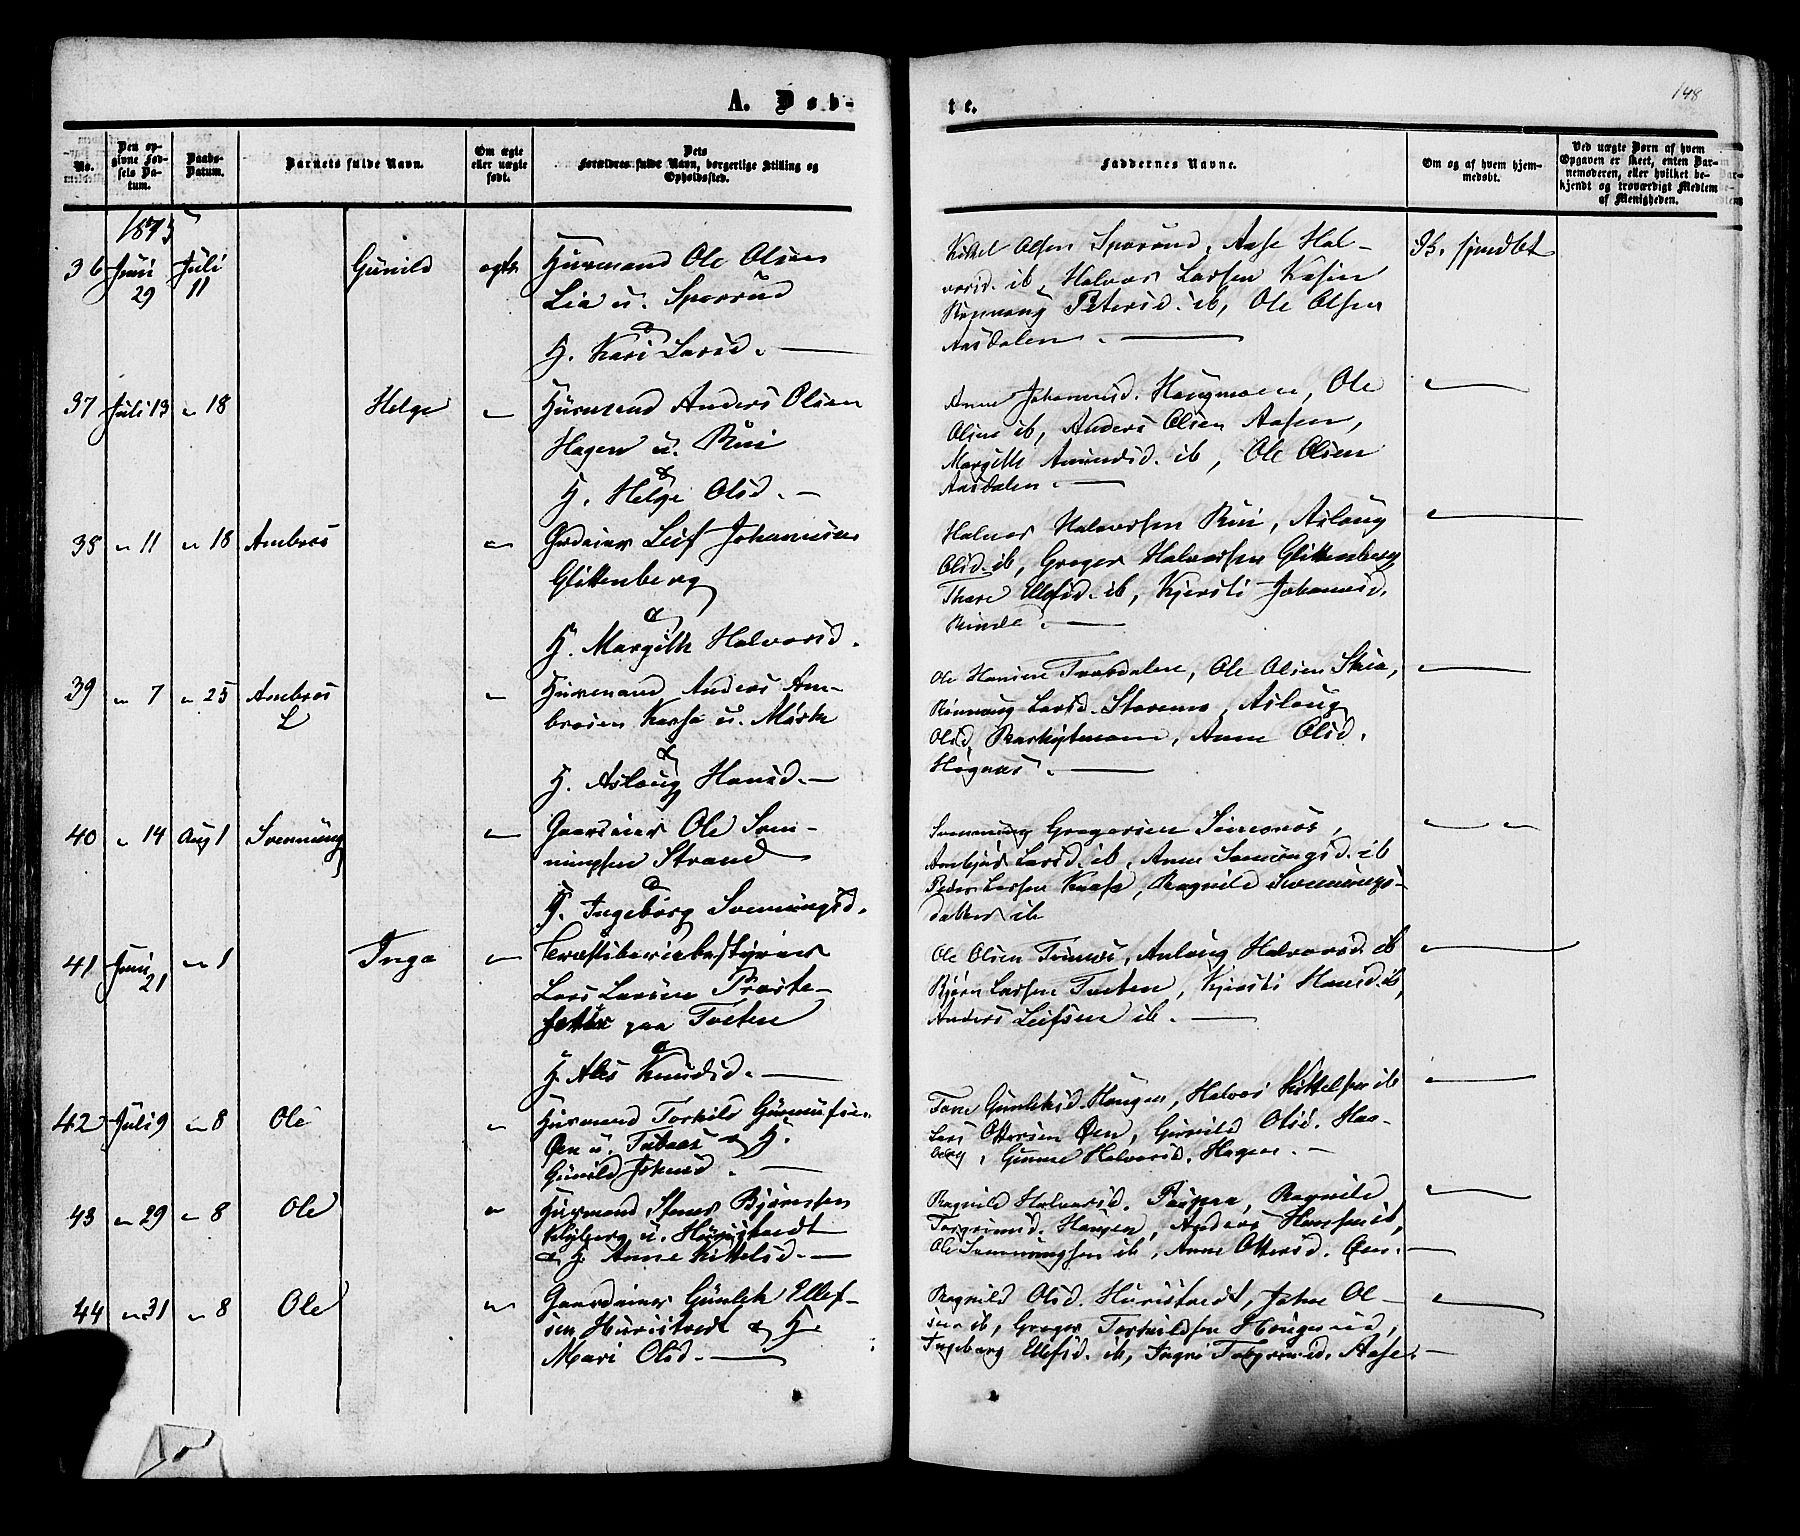 A. Døb-
te.
148
No.
Den opgivne Fødsels Datum.
Daabs-Datum.
Barnets fulde Navn.
Om ægte eller uægte født.
Dets Forældres fulde Navn, borgerlige Stilling og Opholdssted.
Faddernes Navne.
Om og af hvem hjemmedøbt.
Ved uægte Børn af hvem Opgaven er skeet, enten Barnemoderen, eller hvilket bekjendt og troværdigt Medlem af Menigheden.
1875
36 Juni 29 Juli 11 Gunild ægte Husmand Ole Olsen
Lia u. Sporsund
&
H. Kari Larsd.
Kittel Olsen Sporsund, Aase Hal-
vorsd. ib, Halvor Larsen
Rønnaug Petersd. ib, Ole Olsen
Aasdalen
37 Juli 13 " 18 Helge " Husmand Anders Olsen
Hagen u. Rui
&
H. Helge Olsd.
Anne Johannesd. Haugmoen, Ole
Olsen ib, Anders Olsen Aasen,
Margith Amundsd. ib, Ole Olsen
Aasdalen
38 " 11 " 18 Ambros " Grdeier Leif Johannesen
Glittenberg
&
H. Margith Halvorsd.
Halvor Halvorsen Rui, Aslaug
Olsd. ib, Greger Halvorsen Glittenberg
Thore Ellefsd. ib, Kjersti Johannesd.
Rinde
39 " 7 " 25 Ambros L " Husmand Anders Am-
brosen Kaasa u. Mørk
&
H. Aslaug Hansd.
Ole Hansen Traadalen, Ole Olsen Skia,
Rønnaug Larsd. Staremo, Aslaug
Olsd. Anne Olsd.
Høgnas
40 " 14 Aug 1 Svennung " Gaardeier Ole Sven-
nungsen Strand
&
H. Ingeborg Svennungsd.
Svennung Gregersen Simonos,
Larsd. ib, Anne Svennungsd. ib
Peder Larsen Kaasa, Ragnild Svennungs-
datter ib
41 Juni 21 " 1 Inga "
Lars Larsen Præste-
paa Tveten
&
H. Knudsd.
Ole Olsen Halvorsd. ib
Bjørn Larsen Tveten, Kjersti Hansd. ib,
Anders Leifsen ib.
42 Juli 9 " 8 Ole " Husmand Torkild
Øen u. & H.
Gunild Johnsd.
Tone Gunleksd. Haugen, Halvor Kittelsen ib
Lars Ottersen Øen, Gunild Olsd. Haa-
berg, Gunne Halvorsd. Hagen
43 " 29 " 8 Ole " Husmand Stener Bjørnsen
u. Huvestvedt
& H. Anne Kittelsd.
Ragnild Halvorsd. Ragnild
Torgrimsd. Haugen, Anders Hansen ib,
Ole Svennungsen ib, Anne Ottersd. Øen
44 " 31 " 8 Ole " Gaardeier Gunlek Ellef-
sen Huvestvedt & H.
Mari Olsd.
Ragnild Olsd. Huvestvedt, John Ol-
sen ib, Greger Torkildsen
Ingeborg Ellefsd. ib, Ingri Torgrimsd. Aase